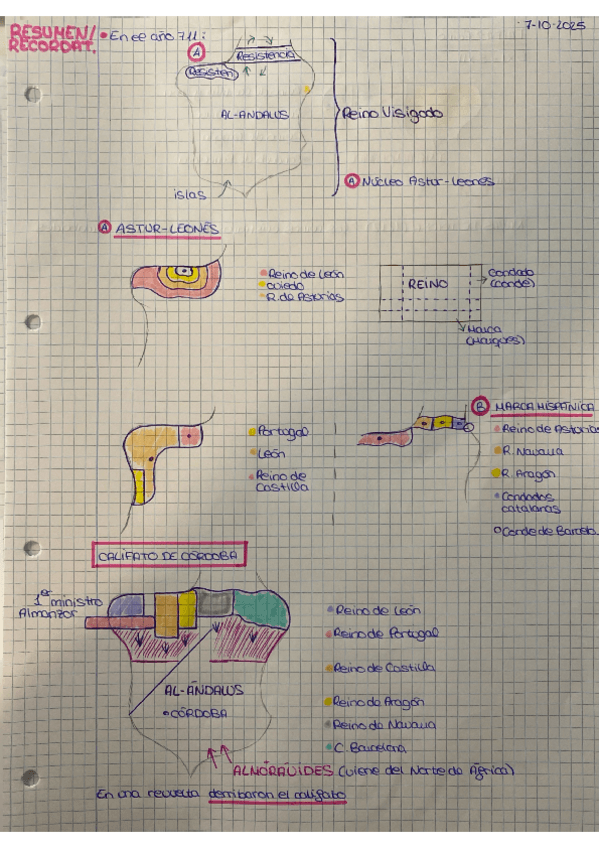 RESUMEN/
RECORDAT.
• En el año 711:
7-10-2025
A
Resistencia
Resisten
AL-ANDALUS
Reino Visigodo
islas
A Núcleo Astur-Leonés
A ASTUR-LEONÉS
Reino de León
Oviedo
R. de Asturias
REINO
Condado
(conde)
Marca
(Marqués)
Portugal
León
Reino de
Castilla
B MARCA HISPÁNICA
Reino de Asturias
R. Navarra
R. Aragón
Condados
catalanas
Conde de Barcelo.
CALIFATO DE CÓRDOBA
1er ministro
Almanzor
AL-ÁNDALUS
CÓRDOBA
Reino de León
Reino de Portugal
Reino de Castilla
Reino de Aragón
Reino de Navarra
C. Barcelona
ALMORÁVIDES (viene del Norte de África)
En una revuelta derribaron el califato